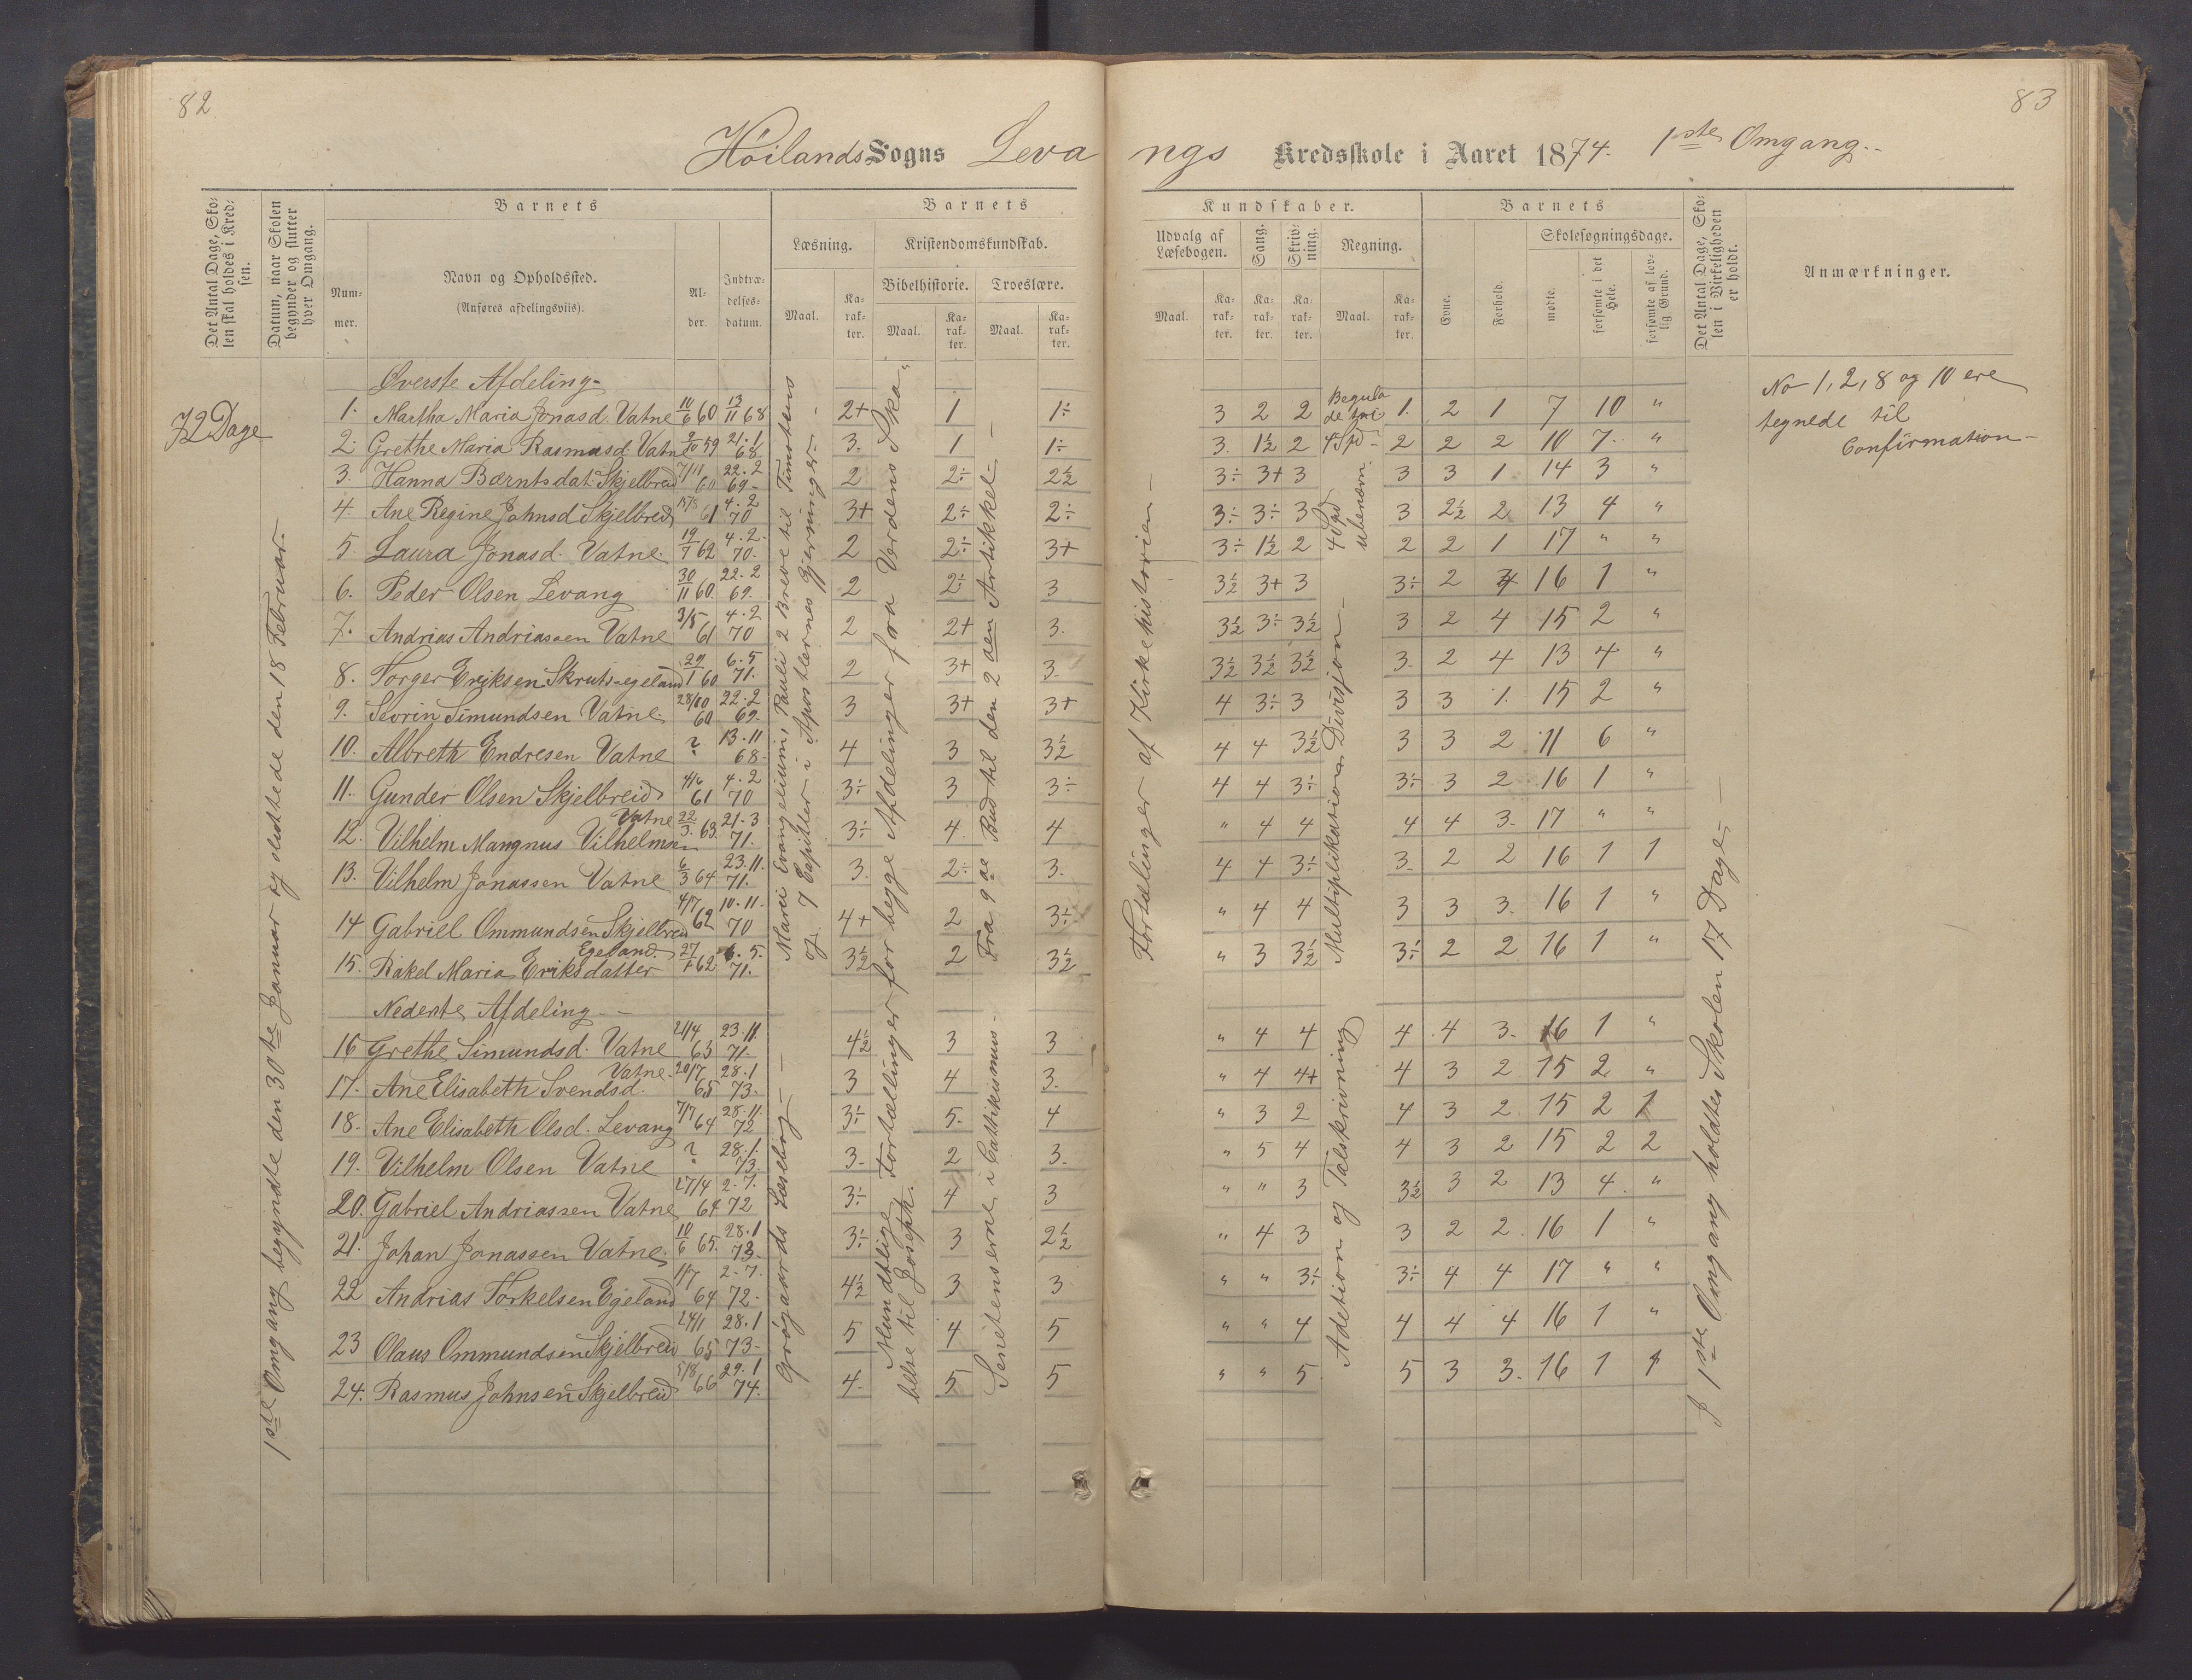 82
83
Høilands Sogns Levangs Kredsskole i Aaret 1874. 1ste Omgang.
Det Antal Dage, Skolen skal holdes i Kredsen.
Datum, naar Skolen begynder og slutter hver Omgang.
Barnets
Nummer.
Navn og Opholdssted.
(Anføres afdelingsviis).
Alder.
Indtrædelsesdatum.
Barnets Kundskaber.
Læsning.
Maal.
Karakter.
Kristendomskundskab.
Bibelhistorie.
Maal.
Karakter.
Troeslære.
Maal.
Karakter.
Udvalg af Læsebogen.
Maal.
Karakter.
Sang.
Karakter.
Skrivning.
Karakter.
Regning.
Maal.
Karakter.
Barnets
Evne.
Forhold.
Skolesøgningsdage.
mødte.
forsømte i det Hele.
forsømte af lovlig Grund.
Det Antal Dage, Skolen i Virkeligheden er holdt.
Anmærkninger.
72 Dage
1ste Omgang begyndte den 30te Januar og sluttede den 18 Februar.
Øverste Afdeling
1. Martha Maria Jonasd. Vatne 10/6 60 13/11 68 2+ 1 1÷ 3 2 2 1. 2 1 7 10 "
2. Grethe Maria Rasmusd. Vatne 2/10 59 21.1 68 3. 1 1÷ 3. 1½ 2 2 2 2 10 7 "
3. Hanna Bærntsdat. Skjelbreid 7/11 60 22.2 69 2 2÷ 2½ 3÷ 3+ 3 3 3 1 14 3 "
4. Ane Regine Johnsd Skjelbreid 61 4.2 70 3+ 2÷ 2÷ 3÷ 3÷ 3 3 2½ 2 13 4 "
5. Laura Jonasd. Vatne. 19/7 62 4.2 70. 2 2÷ 3+ 3÷ 1½ 2 2 2 1 17 " "
6. Peder Olsen Levang 30/11 60. 22.2 69. 2 2÷ 3 3½ 3+ 3 3÷ 2 16 1 "
7. Andrias Andriassen Vatne 3/5 61 4.2 70 2 2+ 3. 3½ 3÷ 3½ 3 2 4 15 2 "
8. Torger Eriksen Skruts-egeland 29/1 60 6.5 71. 2 3+ 3. 3½ 3½ 3½ 3. 2 4 13 4 "
9. Sevrin Simundsen Vatne. 28/10 60 22.2 69. 3 3+ 3+ 4 3÷ 3 3 3 1. 15 2 "
10. Albreth Endresen Vatne ? 13.11 68 4 3 3½ 4 4 3½ 3 3 2 11 6 "
11. Gunder Olsen Skjelbreid 4/6 61 4.2 70 3÷ 3 3÷ 4 4 3÷ 3÷ 3 2 16 1 "
12. Vilhelm Mangnus Vilhelmsen Vatne 22/3 63. 21.3 71. 3÷ 4. 4 " 4 4 4 4 3. 17 " "
13. Vilhelm Jonassen Vatne 6/3 64 23.11. 71. 3. 2÷ 3. 4 4 3÷ 3. 2 2 16 1 1
14 Gabriel Ommundsen Skjelbreid 4/7 62 10.11. 70 4+ 2 3÷ " 4 4 3 3 3. 16 1 "
15. Rakel Maria Eriksdatter Egeland. 27/1 62 6.5. 71. 3½ 2 3½ " 3 3½ 3÷ 2 2 16 1 "
Nederste Afdeling
16 Grethe Simundsd. Vatne 21/4 63 23.11 71. 4½ 3 3 " 4 4 4 4 3. 16 1 "
17. Ane Elisabeth Svendsd. Vatne. 20/7 65 28.1 73. 3 4 3. " 4 4+ 4 3 2 15 2 "
18. Ane Elisabeth Olsd. Levang 7/7 64 28.11. 72 3÷ 5. 4 " 3 2 4 3 2. 15 2 1
19. Vilhelm Olsen Vatne ? 28.1. 73. 3. 2 3. " 5 4 4 3 2 15 2 2
20. Gabriel Andriassen Vatne 27/4 64 2.7. 72 3÷ 4 3 " " 3 3½ 3 2 13 4. "
21. Johan Jonassen Vatne. 10/6 65. 28.1 73. 3÷ 3 2½ " 4 3 3 2 2. 16 1 "
22 Andrias Torkelsen Egeland 1/7 64 2.7. 72. 4½ 3 3 " " 3÷ 3÷ 4 4 17 " "
23 Olaus Ommundsen Skjelbreid 24/1 65 28.1 73. 5 4 5 " " 4 4 4 4 16 1 "
24. Rasmus Johnsen Skjelbreid 5/8 66 29.1 74. 4. 5 5 " " 5. 5 3 3. 16 1 1
Marci Evangeium, Pauli 2 Breve til Timoteus
og 7 Capitler i Apostlernes Gjerninger.
Grøgaards Læsebog
for begge Afdelinger fra Verdens Ska-
Mundtlige Fortællinger
belse til Joseph.
Fra 9de Bud til den 2den Artikkel
Senetenserne i Cattikismus
Fortællinger af Kirkehistorien
Regula de tri
4 Spd
4 Spd ubenævn.
Multiplikation Division
Adetion og Talskrivning
I 1ste Omgang holdtes Skolen 17 Dage
No 1, 2, 8 og 10 ere
tegnede til
Confirmation